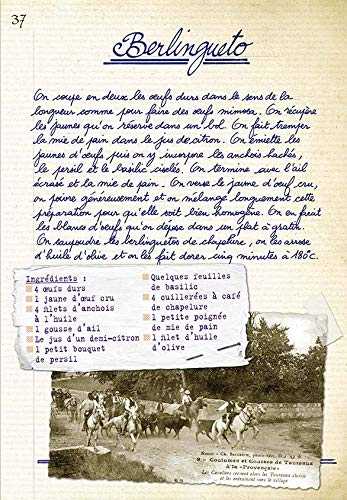 37
Berlingueto
On coupe en deux les œufs durs dans le sens de la
longueur comme pour faire des œufs mimosa. On récupère
les jaunes qu'on réserve dans un bol. On fait tremper
la mie de pain dans le jus de citron. On émiette les
jaunes d'œufs puis on y incorpore les anchois hachés,
le persil et le basilic ciselés. On termine avec l'ail
écrasé et la mie de pain. On verse le jaune d'œuf cru,
on poivre généreusement et on mélange longuement cette
préparation pour qu'elle soit bien homogène. On en farcit
les blancs d'œufs qu'on dépose dans un plat à gratin.
On saupoudre les berlinguetos de chapelure, on les arrose
d'huile d'olive et on les fait dorer cinq minutes à 180°C.
Ingrédients :
4 œufs durs
1 jaune d'œuf cru
4 filets d'anchois
à l'huile
1 gousse d'ail
Le jus d'un demi-citron
1 petit bouquet
de persil
Quelques feuilles
de basilic
4 cuillerées à café
de chapelure
1 petite poignée
de mie de pain
1 filet d'huile
d'olive
8 - Coutumes et Courses de Taureaux
à la «Provençale»
Les Cavaliers cernent alors les Taureaux choisis
et les entraînent vers le village